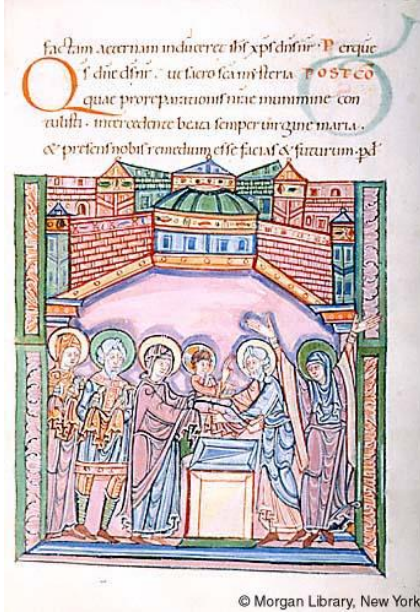 factam aeternam induceret ihs xps dnsnr · Perque
Qs dne dsnr · ut sacro sca misteria POSTCO
quae proreparationis nrae munimine con
tulisti · intercedente beata semper uirgine maria ·
& presens nobis remedium esse facias & futurum · pd
© Morgan Library, New York